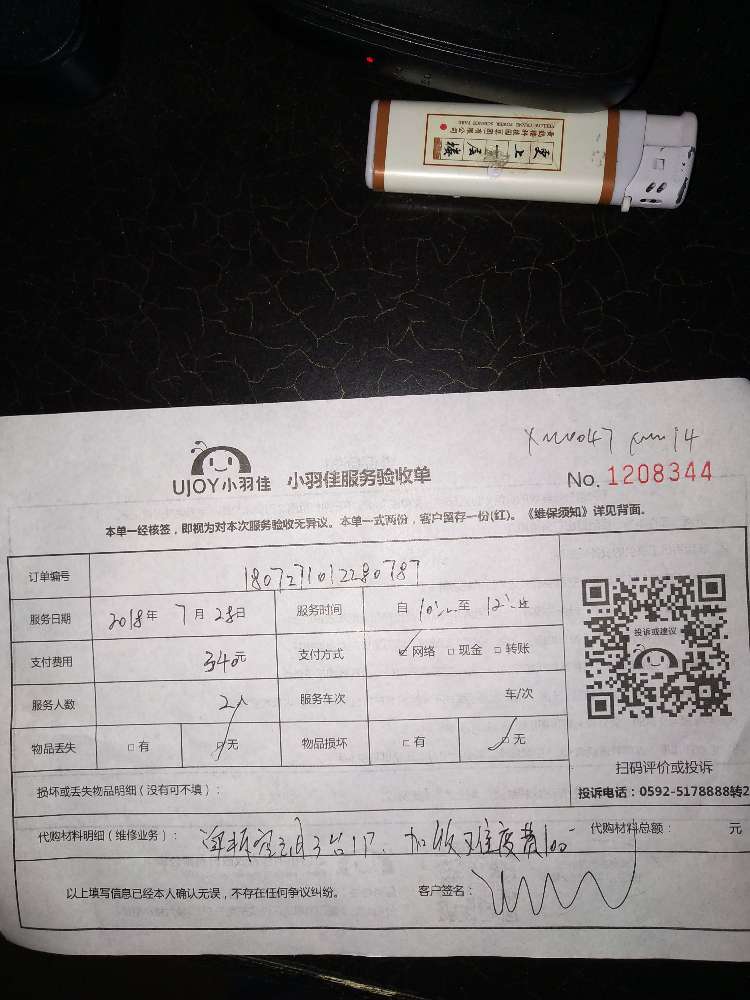 更上一层楼
黄鹤楼科技园(集团)有限公司
YELLOW CRANE TOWER SCIENCE PARK
UJOY小羽佳 小羽佳服务验收单
No. 1208344
本单一经核签，即视为对本次服务验收无异议。本单一式两份，客户留存一份(红)。《维保须知》详见背面。
订单编号 1807271012280787
服务日期 2018年 7月 28日 服务时间 自 10:00 至 12:00 止
支付费用 340元 支付方式 ☑网络 □现金 □转账
服务人数 2人 服务车次 车/次
物品丢失 □有 ☑无 物品损坏 □有 ☑无
投诉或建议
扫码评价或投诉
投诉电话：0592-5178888转2
损坏或丢失物品明细（没有可不填）：
代购材料明细（维修业务）： 加收难度费100 代购材料总额： 元
以上填写信息已经本人确认无误，不存在任何争议纠纷。 客户签名：